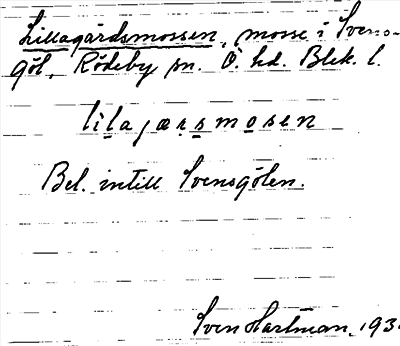 Lillagärdsmossen, mosse i Svens-
göl, Rödeby sn. Ö. hd. Blek. l.
lilajærsmosen
Bel. intill Svensgölen.
Sven Hartman, 193